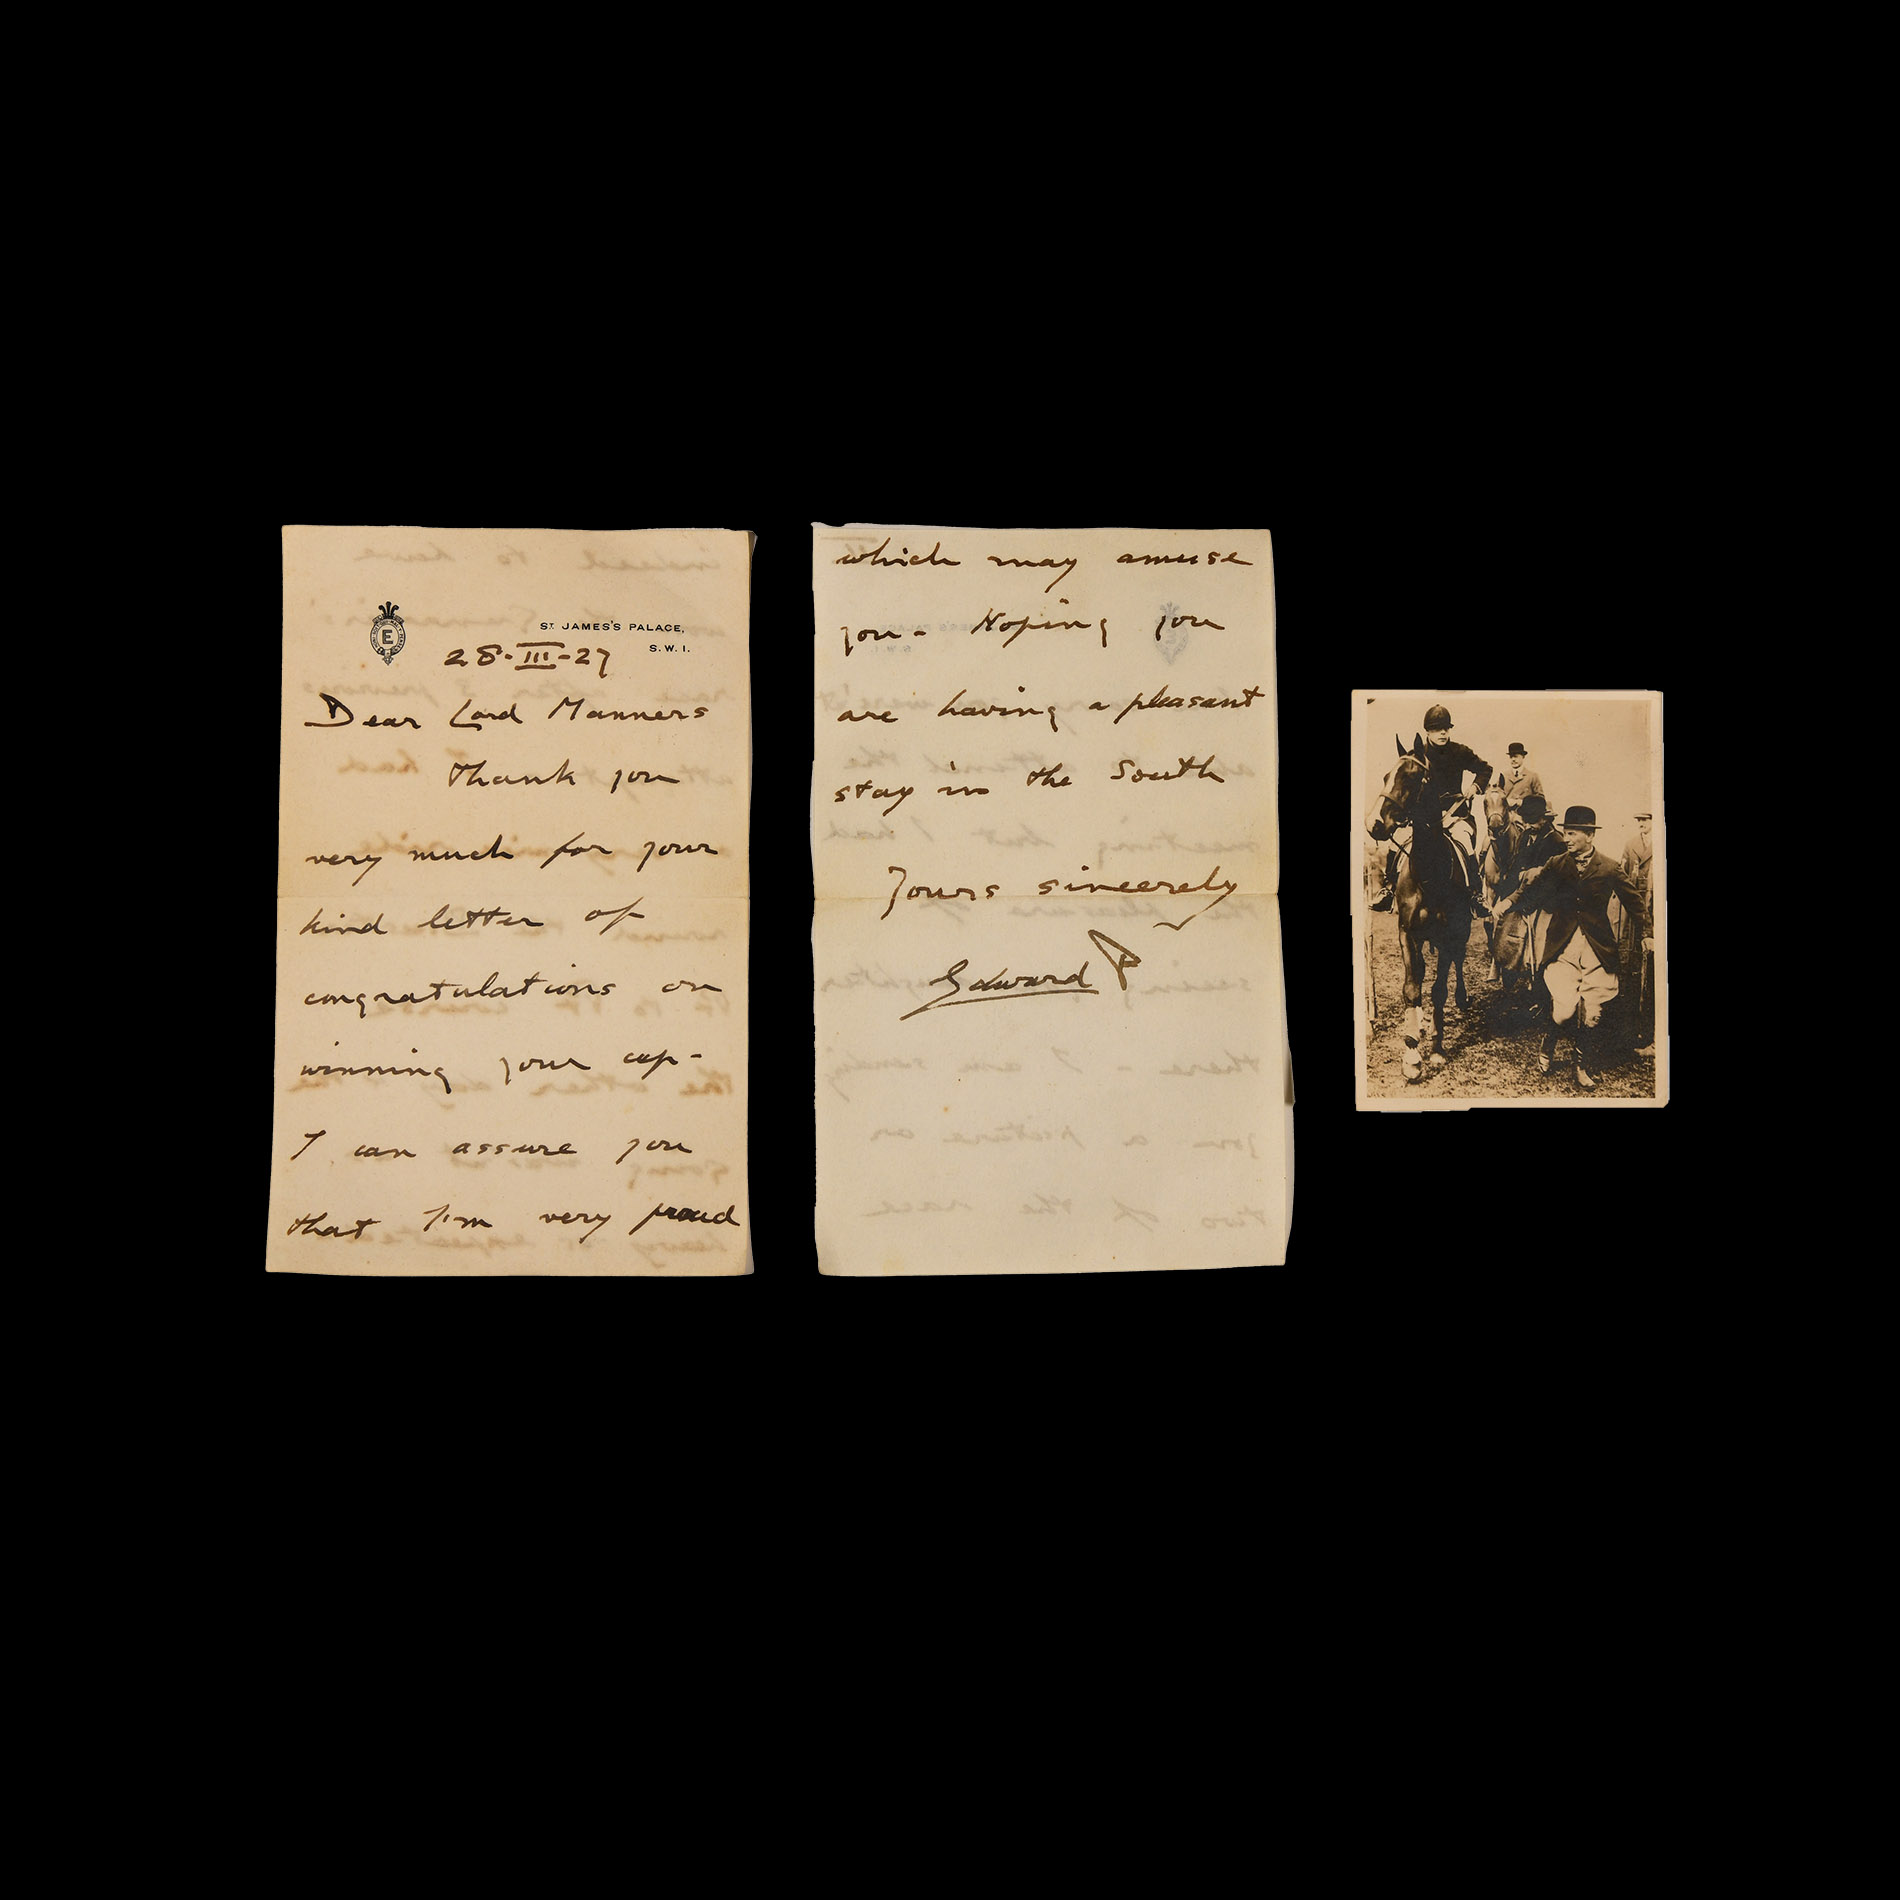 E
ST. JAMES'S PALACE,
S.W.1.
28-III-27
Dear Lord Manners
Thank you
very much for your
kind letter of
congratulations on
winning your cup-
I can assure you
that I'm very proud
which may amuse
you - Hoping you
are having a pleasant
stay in the South
Yours sincerely
Edward P